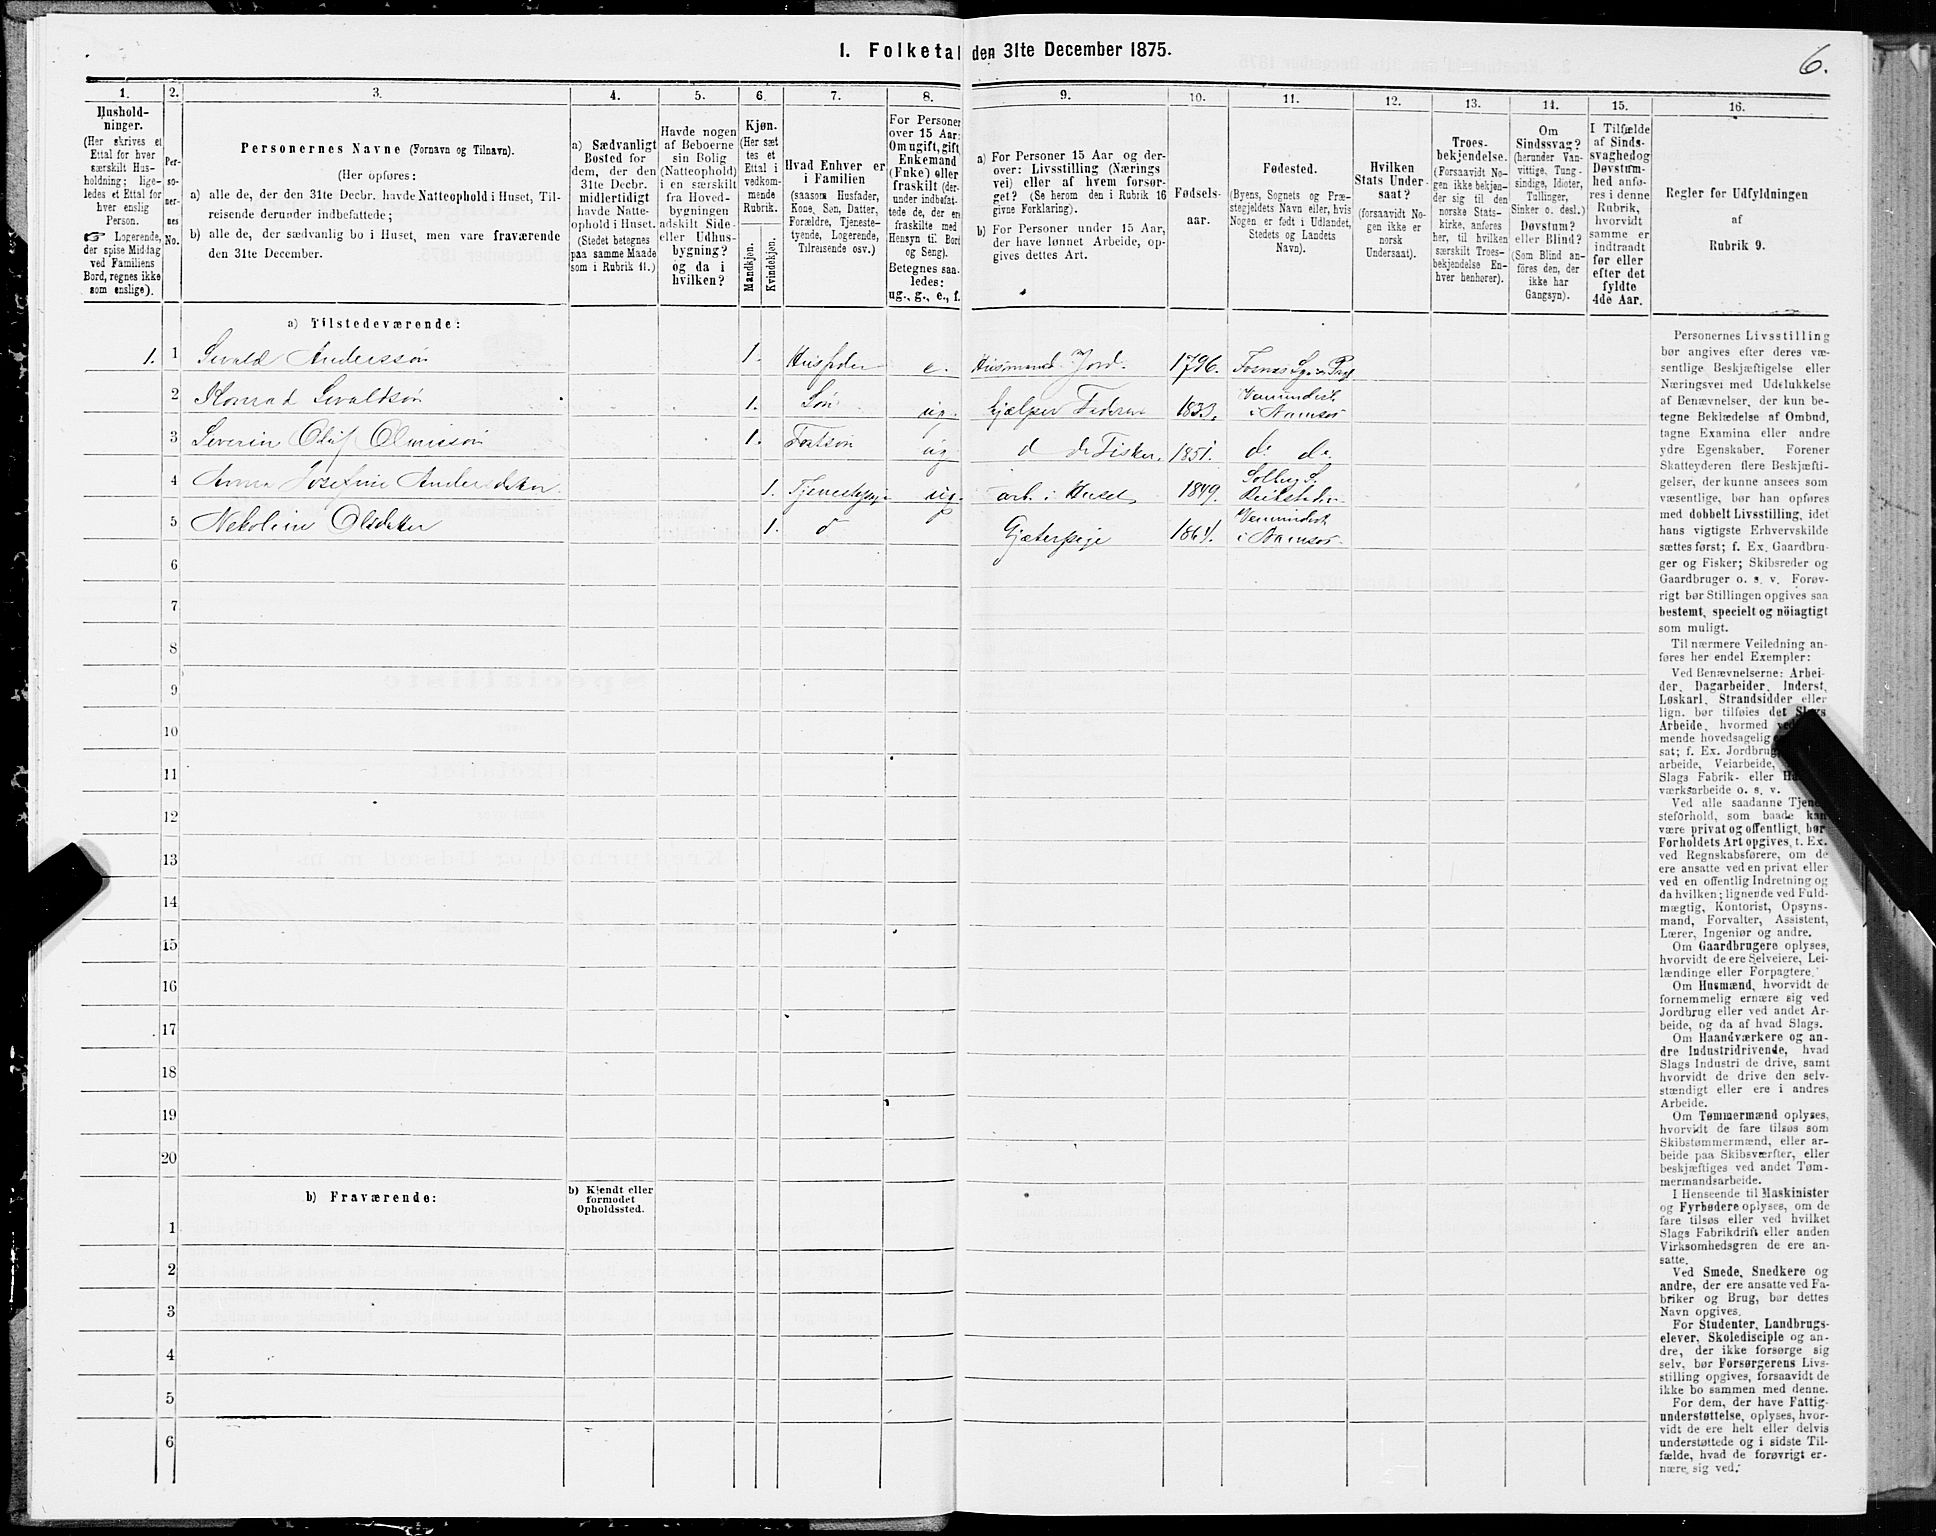 I. Folketal den 31te December 1875.
6.
1. 2. 3. 4. 5. 6. 7. 8. 9. 10. 11. 12. 13. 14. 15. 16.
Hushold-
ninger.
(Her skrives et
Ettal for hver
særskilt Hus-
holdning; lige-
ledes et Ettal for
hver enslig
Person.
☞ Logerende,
der spise Middag
ved Familiens
Bord, regnes ikke
som enslige).
Per-
so-
ner-
nes
No.
Personernes Navne (Fornavn og Tilnavn).
(Her opføres:
a) alle de, der den 31te Decbr. havde Natteophold i Huset, Til-
reisende derunder indbefattede;
b) alle de, der sædvanlig bo i Huset, men vare fraværende
den 31te December.
a) Sædvanligt
Bosted for
dem, der den
31te Decbr.
midlertidigt
havde Natte-
ophold i Huset.
(Stedet betegnes
paa samme Maade
som i Rubrik 11.)
Havde nogen
af Beboerne
sin Bolig
(Natteophold)
i en særskilt
fra Hoved-
bygningen
adskilt Side-
eller Udhus-
bygning?
og da i
hvilken?
Kjøn.
(Her sæt
tes et
Ettal i
vedkom-
mende
Rubrik.
Mandkjøn.
Kvindekjøn.
Hvad Enhver er
i Familien
(saasom Husfader,
Kone, Søn, Datter,
Forældre, Tjeneste-
tyende, Logerende,
Tilreisende osv.)
For Personer
over 15 Aar:
Om ugift, gift,
Enkemand
(Enke) eller
fraskilt (der-
under indbefat-
tede de, der ere
fraskilte med
Hensyn til Bord
og Seng).
Betegnes saa-
ledes:
ug., g., e., f.
a) For Personer 15 Aar og der-
over: Livsstilling (Nærings
vei) eller af hvem forsør-
get? (Se herom den i Rubrik 16
givne Forklaring).
b) For Personer under 15 Aar,
der have lønnet Arbeide, op-
gives dettes Art.
Fødsels-
aar.
Fødested.
(Byens, Sognets og Præ-
stegjeldets Navn eller, hvis
Nogen er født i Udlandet,
Stedets og Landets
Navn).
Hvilken
Stats Under-
saat?
(forsaavidt No-
gen ikke er
norsk
Undersaat).
Troes-
bekjendelse.
(Forsaavidt No-
gen ikke bekjen-
der sig til den
norske Stats-
kirke, anføres
her, til hvilken
særskilt Troes-
bekjendelse En-
hver henhører).
Om
Sindssvag?
(herunder Van-
vittige, Tung-
sindige, Idioter,
Tullinger,
Sinker o. desl.)
Døvstum?
eller Blind?
(Som Blind an-
føres den, der
ikke har
Gangsyn).
I Tilfælde
af Sinds-
svaghed og
Døvstum-
hed anfø-
res i denne
Rubrik,
hvorvidt
samme er
indtraadt
før eller
efter det
fyldte
4de Aar.
Regler for Udfyldningen
af
Rubrik 9.
a) Tilstedeværende:
1. 1 Sivald Anderssøn 1. Husfader e. Husmand m Jord. 1796. Fosnæs
2 Konrad Sivaldsøn 1. Søn ug. hjælper Faderen 1833. i Namsos
3 Severin Oluf 1. ug d do Fisker. 1851. do do
4 Anna Josefine Andersdatter 1. Tjenestepige ug. arb. i Huset 1849. Solberg S.
5 Nekoline Olsdatter 1. d Gjæterpige 1864. i Namsos
6
7
8
9
10
11
12
13
14
15
16
17
18
19
20
b) Fraværende:
b) Kjendt eller
formodet
Opholdssted.
1
2
3
4
5
6
Personernes Livsstilling
bør angives efter deres væ-
sentlige Beskjæftigelse eller
Næringsvei med Udelukkelse
af Benævnelser, der kun be-
tegne Beklædelse af Ombud,
tagne Examina eller andre
ydre Egenskaber. Forener
Skatteyderen flere Beskjæfti-
gelser, der kunne ansees som
væsentlige, bør han opføres
med dobbelt Livsstilling, idet
hans vigtigste Erhvervskilde
sættes først; f. Ex. Gaardbru-
ger og Fisker; Skibsreder og
Gaardbruger o. s. v. Forøv-
rigt bør Stillingen opgives saa
bestemt, specielt og nöiagtigt
som muligt.
Til nærmere Veiledning an-
føres her endel Exempler:
Ved Benævnelserne: Arbei-
der, Dagarbeider, Inderst,
Løskarl, Strandsidder eller
lign. bør tilføies det Slags
Arbeide, hvormed
mende hovedsagelig
sat; f. Ex. Jordbrug
arbeide, Veiarbeide,
Slags Fabrik- eller
værksarbeide o. s. v.
Ved alle saadanne Tjene-
steforhold, som baade kan
være privat og offentligt, bør
Forholdets Art opgives, t. Ex.
ved Regnskabsførere, om de
ere ansatte ved en privat eller
ved en offentlig Indretning og
da hvilken; lignende ved Fuld-
mægtig, Kontorist, Opsyns-
mand, Forvalter, Assistent,
Lærer, Ingeniør og andre.
Om Gaardbrugere oplyses,
hvorvidt de ere Selveiere, Lei-
lændinge eller Forpagtere.
Om Husmænd, hvorvidt de
fornemmelig ernære sig ved
Jordbrug eller ved andet Ar-
beide, og da af hvad Slags.
Om Haandværkere og an-
dre Industridrivende, hvad
Slags Industri de drive, samt
hvorvidt de drive den selv-
stændigt eller ere i andres
Arbeide.
Om Tømmermænd oplyses,
hvorvidt de fare tilsøs som
Skibstømmermænd, eller ar-
beide paa Skibsværfter, eller
beskjæftiges ved andet Tøm-
mermandsarbeide.
I Henseende til Maskinister
og Fyrbødere oplyses, om de
fare tilsøs eller ved hvilket
Slags Fabrikdrift eller anden
Virksomhedsgren de ere an-
satte.
Ved Smede, Snedkere og
andre, der ere ansatte ved Fa-
briker og Brug, bør dettes
Navn opgives.
For Studenter, Landbrugs-
elever, Skoledisciple og an-
dre, der ikke forsørge sig
selv, bør Forsørgerens Livs-
stilling opgives, forsaavidt de
ikke bo sammen med denne.
For dem, der have Fattig-
understøttelse, oplyses, hvor-
vidt de ere helt eller delvis
understøttede og i sidste Til-
fælde, hvad de forøvrigt er-
nære sig ved.